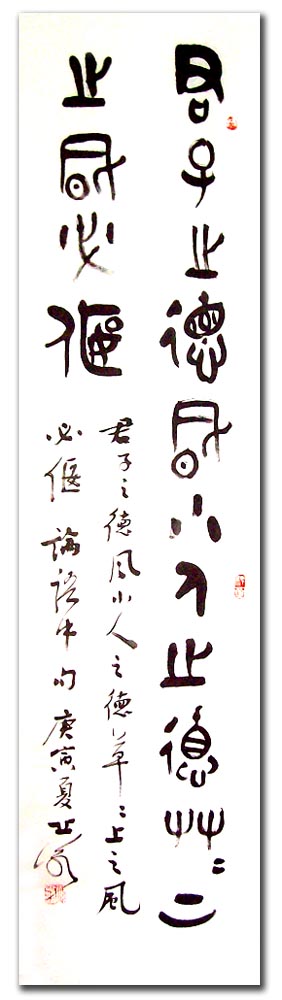 君子之德風小人之德艸〻上
之風必偃
君子之德風小人之德草〻上之風
必偃 論語中句 庚寅夏